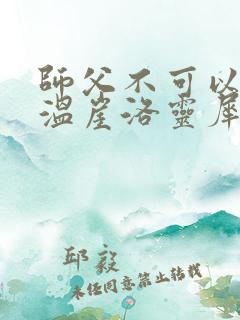 師父不可以
溫崖洛靈犀
邱毅
未經同意禁止轉載